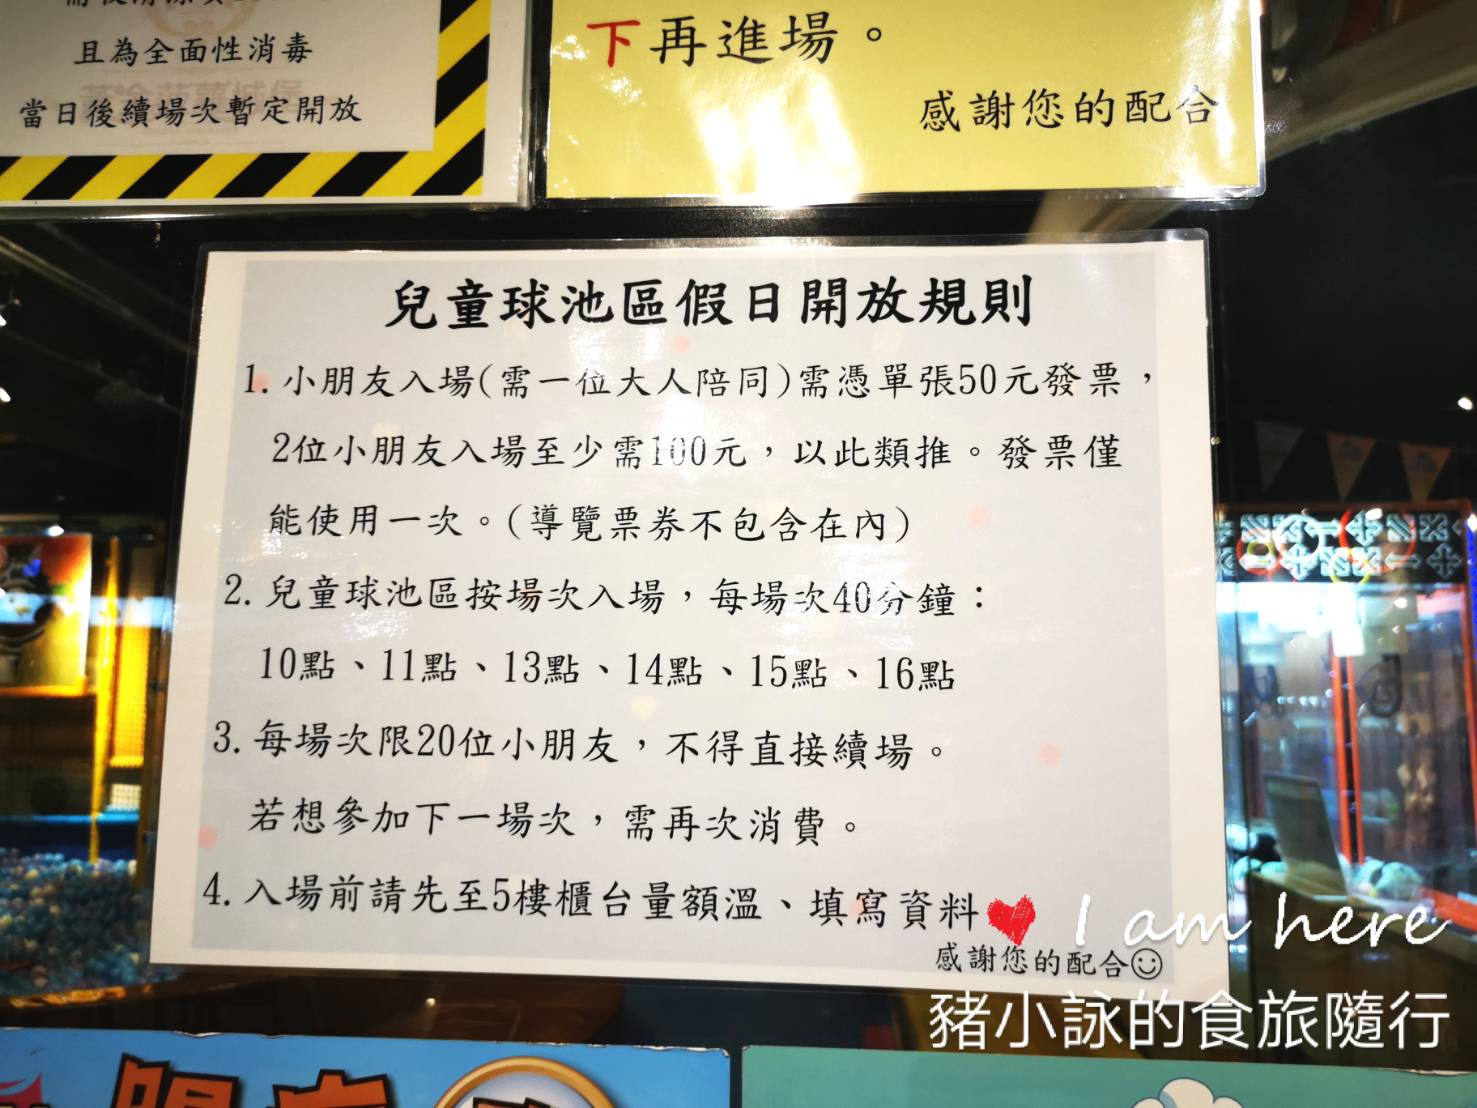 且為全面性消毒
當日後續場次暫定開放
下再進場。
感謝您的配合
兒童球池區假日開放規則
1.小朋友入場(需一位大人陪同)需憑單張50元發票，
2位小朋友入場至少需100元，以此類推。發票僅
能使用一次。(導覽票券不包含在內)
2.兒童球池區按場次入場，每場次40分鐘：
10點、11點、13點、14點、15點、16點
3.每場次限20位小朋友，不得直接續場。
若想參加下一場次，需再次消費。
4.入場前請先至5樓櫃台量額溫、填寫資料
感謝您的配合
I am here
豬小詠的食旅隨行